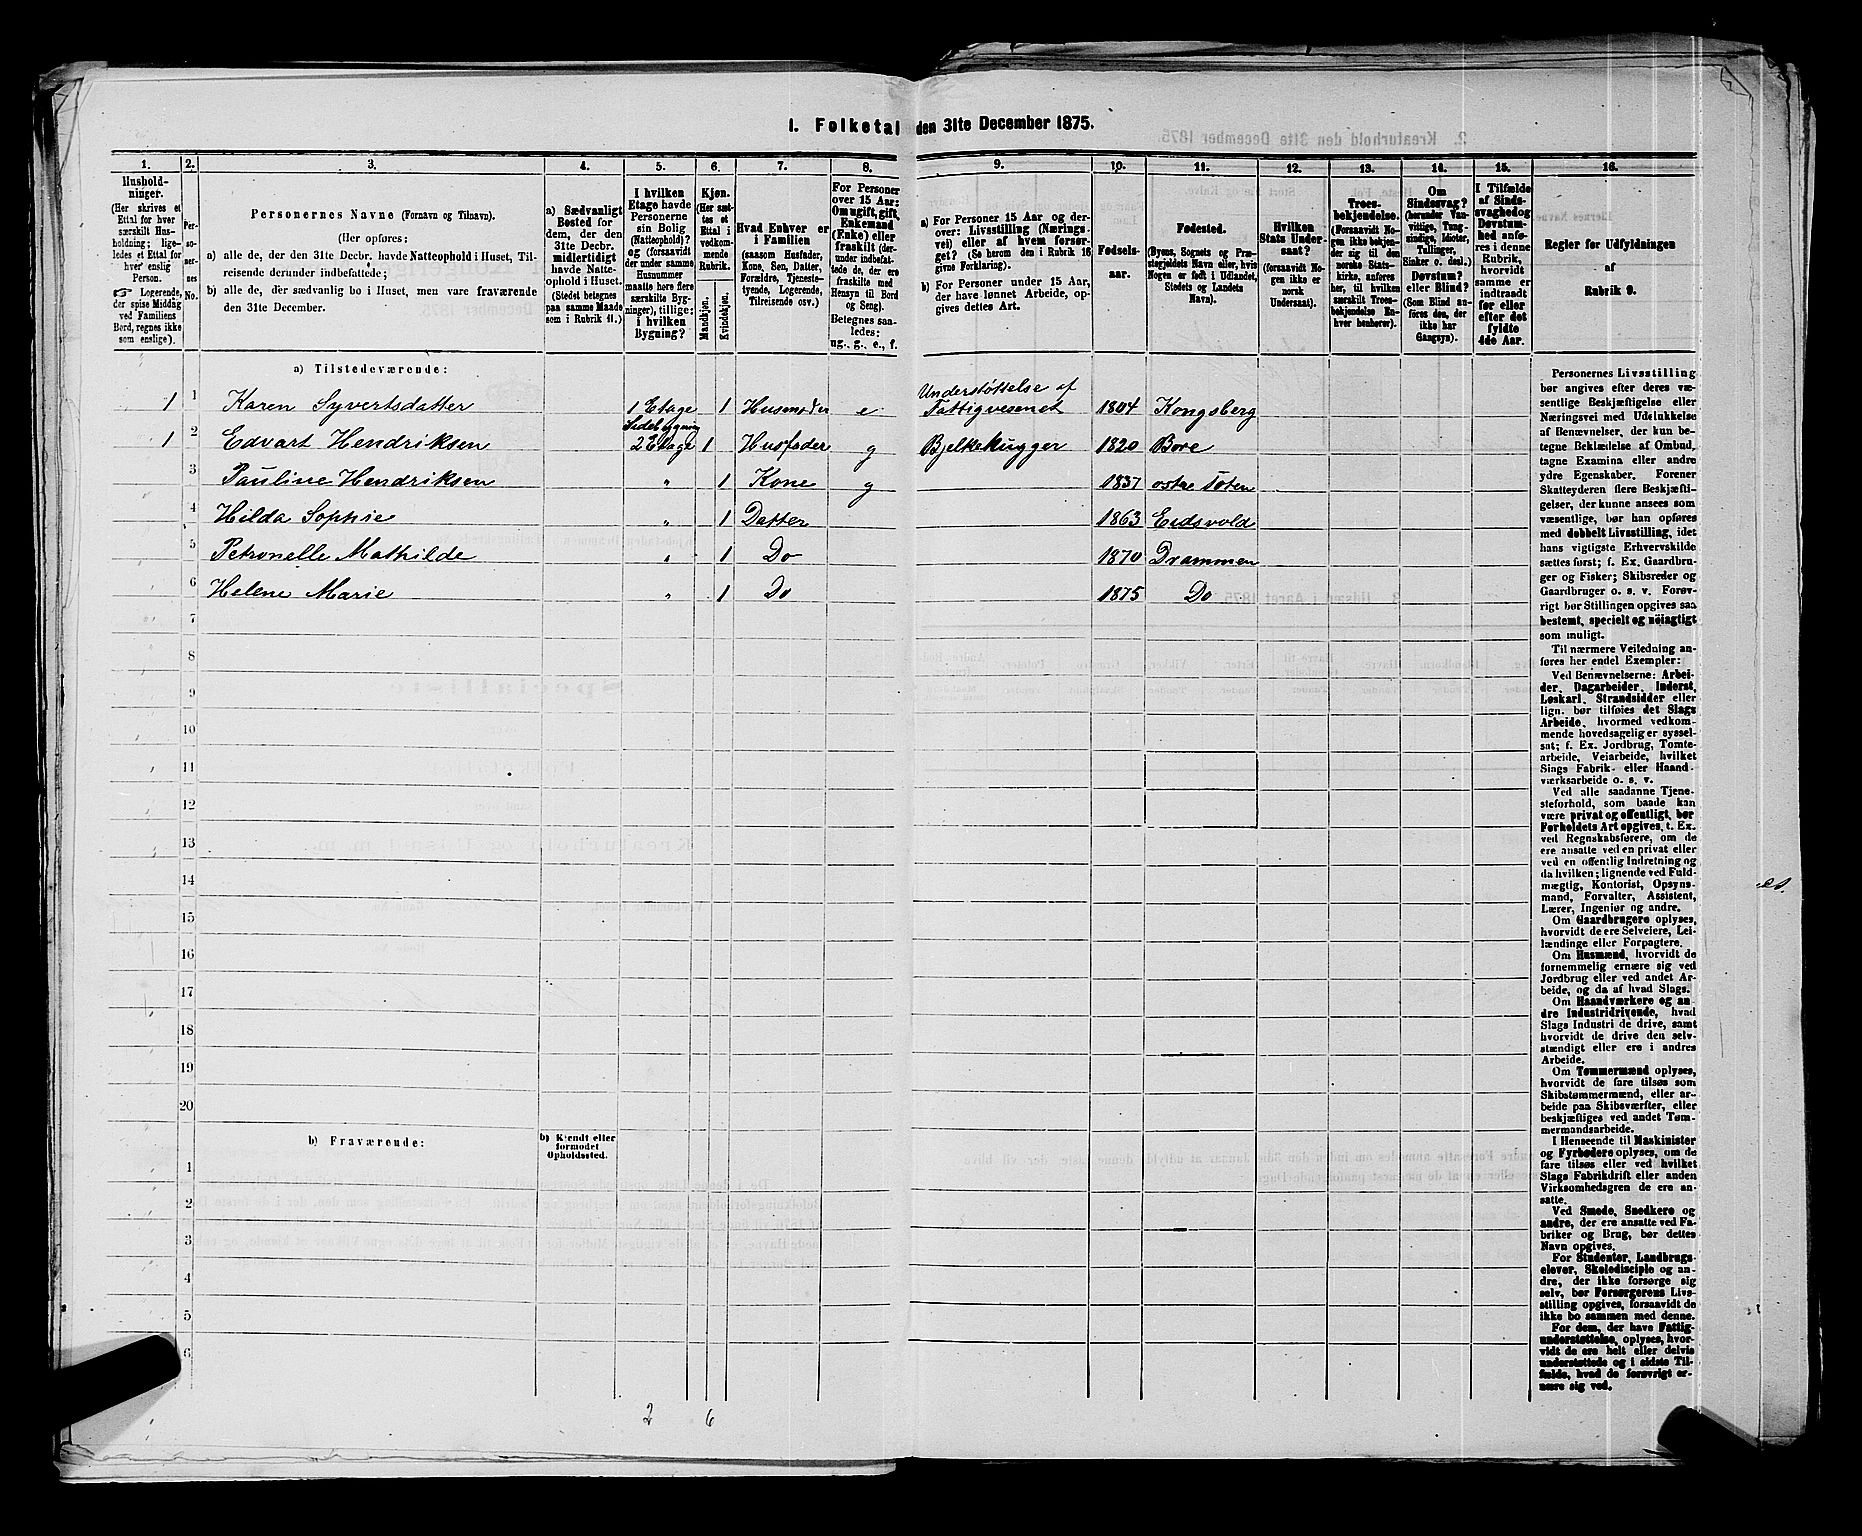 1. Folketal den 31te December 1875.
1. 2. 3. 4. 5. 6. 7. 8. 9. 10. 11. 12. 13. 14. 15. 16.
Husholdninger.
(Her skrives et
Ettal for hver
særskilt Husholdning;
ligeledes et Ettal for
hver enslig
Person.
Logerende,
der spise Middag
ved Familiens
Bord, regnes ikke
som enslige).
Personernes No.
Personernes Navne (Fornavn og Tilnavn).
(Her opføres:
a) alle de, der den 31te Decbr. havde Natteophold i Huset, Tilreisende
derunder indbefattede;
b) alle de, der sædvanlig bo i Huset, men vare fraværende
den 31te December.
a) Sædvanligt
Bosted for
dem, der den
31te Decbr.
midlertidigt
havde Natteophold
i Huset.
(Stedet betegnes
paa samme Maade
som i Rubrik 11.)
I hvilken
Etage havde
Personerne
sin Bolig
(Natteophold)?
og (forsaavidt
der under samme
Husnummer
maatte høre flere
særskilte Bygninger),
tillige:
i hvilken
Bygning?
Kjøn.
(Her sættes
et
Ettal i
vedkommende
Rubrik.
Mandkjøn.
Kvindekjøn.
Hvad Enhver er
i Familien
(saasom Husfader,
Kone, Søn, Datter,
Forældre, Tjenestetyende,
Logerende,
Tilreisende osv.)
For Personer
over 15 Aar:
Om ugift, gift,
Enkemand
(Enke) eller
fraskilt (derunder
indbefattede
de, der ere
fraskilte med
Hensyn til Bord
og Seng).
Betegnes saaledes:
ug., g., e., f.
a) For Personer 15 Aar og derover:
Livsstilling (Næringsvei)
eller af hvem forsørget?
(Se herom den i Rubrik 16
givne Forklaring).
b) For Personer under 15 Aar,
der have lønnet Arbeide, opgives
dettes Art.
Fødselsaar.
Fødested.
(Byens, Sognets og Præstegjeldets
Navn eller, hvis
Nogen er født i Udlandet,
Stedets og Landets
Navn).
Hvilken
Stats Undersaat?
(forsaavidt Nogen
ikke er
norsk
Undersaat).
Troesbekjendelse.
(Forsaavidt Nogen
ikke bekjender
sig til den
norske Statskirke,
anføres
her, til hvilken
særskilt Troesbekjendelse
Enhver
henhører).
Om
Sindssvag?
(herunder Vanvittige,
Tungsindige,
Idioter,
Tullinger,
Sinker o. desl.)
Døvstum?
eller Blind?
(Som Blind anføres
den, der
ikke har
Gangsyn).
I Tilfælde
af Sindssvaghed
og
Døvstumhed
anføres
i denne
Rubrik,
hvorvidt
samme er
indtraadt
før eller
efter det
fyldte
4de Aar.
Regler for Udfyldningen
af
Rubrik 9.
a) Tilstedeværende:
1 1 Karen Syvertsdatter 1 Etage 1 Husmoder e Understøttelse af Fattigvesenet 1804 Kongsberg
1 2 Edvart Hendriksen Sidebygning 2 Etage 1 Husfader g Bjelkehugger 1820 Bore
3 Pauline Hendriksen " 1 Kone g 1837 ostre Toten
4 Hilda Sophie " 1 Datter 1863 Eidsvold
5 Petronelle Mathilde " 1 Do 1870 Drammen
6 Helene Marie " 1 Do 1875 Do
7
8
9
10
11
12
13
14
15
16
17
18
19
20
b) Fraværende:
b) Kjendt eller
formodet
Opholdssted.
1
2
3
4
5
6
2 6
Personernes Livsstilling
bør angives efter deres væsentlige
Beskjæftigelse eller
Næringsvei med Udelukkelse
af Benævnelser, der kun betegne
Beklædelse af Ombud,
tagne Examina eller andre
ydre Egenskaber. Forener
Skatteyderen flere Beskjæftigelser,
der kunne ansees som
væsentlige, bør han opføres
med dobbelt Livsstilling, idet
hans vigtigste Erhvervskilde
sættes først; f. Ex. Gaardbruger
og Fisker; Skibsreder og
Gaardbruger o. s. v. Forøvrigt
bør Stillingen opgives saa
bestemt, specielt og nøiagtigt
som muligt.
Til nærmere Veiledning anføres
her endel Exempler:
Ved Benævnelserne: Arbeider,
Dagarbeider, Inderst,
Løskarl, Strandsidder eller
lign. bør tilføies det Slags
Arbeide, hvormed vedkommende
hovedsagelig er sysselsat;
f. Ex. Jordbrug, Tomtearbeide,
Veiarbeide, hvilket
Slags Fabrik- eller Haandværksarbeide
o. s. v.
Ved alle saadanne Tjenesteforhold,
som baade kan
være privat og offentligt, bør
Forholdets Art opgives, t. Ex.
ved Regnskabsførere, om de
ere ansatte ved en privat eller
ved en offentlig Indretning og
da hvilken; lignende ved Fuldmægtig,
Kontorist, Opsynsmand,
Forvalter, Assistent,
Lærer, Ingeniør og andre.
Om Gaardbrugere oplyses,
hvorvidt de ere Selveiere, Leilændinge
eller Forpagtere.
Om Husmænd, hvorvidt de
fornemmelig ernære sig ved
Jordbrug eller ved andet Arbeide,
og da af hvad Slags.
Om Haandværkere og andre
Industridrivende, hvad
Slags Industri de drive, samt
hvorvidt de drive den selvstændigt
eller ere i andres
Arbeide.
Om Tømmermænd oplyses,
hvorvidt de fare tilsøs som
Skibstømmermænd, eller arbeide
paa Skibsværfter, eller
beskjæftiges ved andet Tømmermandsarbeide.
I Henseende til Maskinister
og Fyrbødere oplyses, om de
fare tilsøs eller ved hvilket
Slags Fabrikdrift eller anden
Virksomhedsgren de ere ansatte.
Ved Smede, Snedkere og
andre, der ere ansatte ved Fabriker
og Brug, bør dettes
Navn opgives.
For Studenter, Landbrugselever,
Skoledisciple og andre,
der ikke forsørge sig
selv, bør Forsørgerens Livsstilling
opgives, forsaavidt de
ikke bo sammen med denne.
For dem, der have Fattigunderstøttelse,
oplyses, hvorvidt
de ere helt eller delvis
understøttede og i sidste Tilfælde,
hvad de forøvrigt ernære
sig ved.